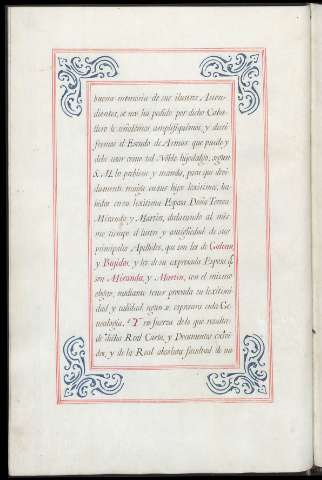 buena memoria de sus ilustres Ascen-
dientes, se nos ha pedido por dicho Caba-
llero le señalemos, amplifiquemos, y desci-
fremos el Escudo de Armas que puede y
debe usar como tal Noble hijodalgo, segun
S. M. lo previene y manda, para que devi-
damente usen sus hijos lexitimos, ha-
vidos en su lexitima Esposa Doña Teresa
Miranda y Martin, declarando al mis-
mo tiempo el lustre y antigüedad de sus
principales Apellidos, que son los de
y los de su expresada Esposa q.
son Miranda, y Martin, con el mismo
objeto, mediante tener provada su lexitimi-
dad y calidad segun se expresara en la Ge-
nealogia. Y en fuerza de lo que resulta
de dicha Real Carta, y Documentos exivi-
dos, y de la Real absoluta facultad de no